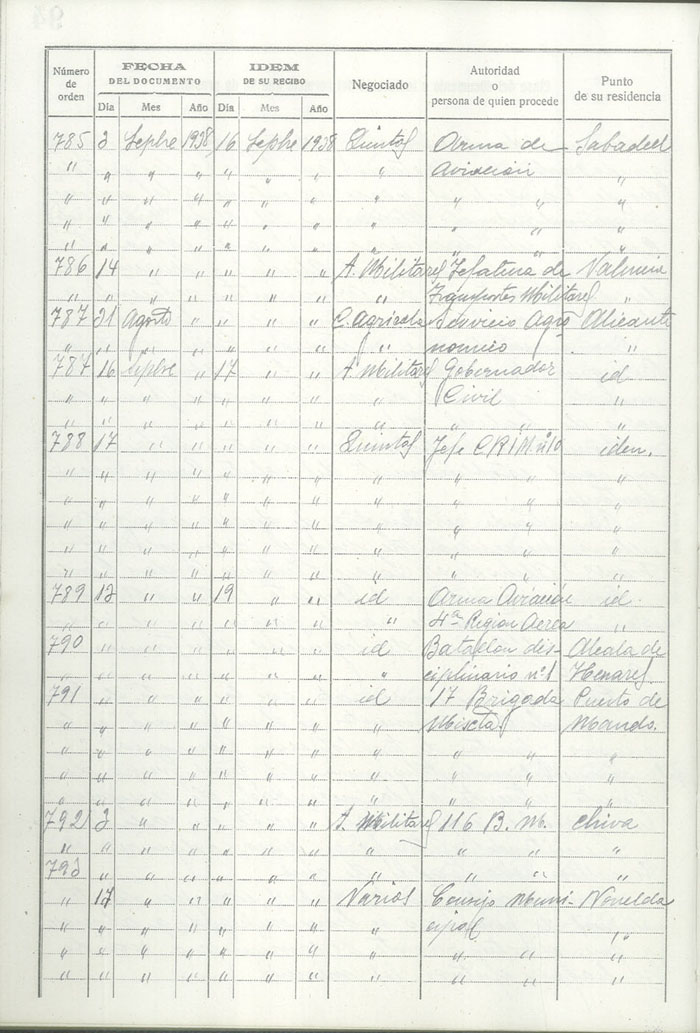 Número de orden FECHA DEL DOCUMENTO IDEM DE SU RECIBO Negociado Autoridad o persona de quien procede Punto de su residencia
Día Mes Año Día Mes Año
785 3 Sepbre 1938 16 Sepbre 1938 Quintas Arma de Sabadell
" " " " " " " " Aviación "
" " " " " " " " " " "
" " " " " " " " " " "
" " " " " " " " " " "
786 14 " " " " " A. Militares Jefatura de Valencia
" " " " " " " " Transportes Militares "
787 31 Agosto " " " " C. Agricola Servicio Agro Alicante
" " " " " " " " nomico "
787 16 Sepbre " 17 " " A. Militares Gobernador id
" " " " " " " " Civil "
" " " " " " " " " " "
788 17 " " " " " Quintas Jefe C.R.I.M. nº 10 iden.
" " " " " " " " " " "
" " " " " " " " " " "
" " " " " " " " " " "
" " " " " " " " " " "
" " " " " " " " " " "
789 12 " " 19 " " id Arma Aviación id.
" " " " " " " " 4ª Región Aerea "
790 " " " " " " id Batallon dis- Alcala de
" " " " " " " " ciplinario nº 1 Henares
791 " " " " " " id 17 Brigada Puerto de
" " " " " " " " Mixta
" " " " " " " " " " "
" " " " " " " " " " "
" " " " " " " " " " "
792 3 " " " " " A. Militares 116 B. M. Chiva
" " " " " " " " " " "
793 " " " " " " " " " "
" 17 " " " " " Varios Consejo Muni- Novelda
" " " " " " " " cipal "
" " " " " " " " " " "
" " " " " " " " " " "